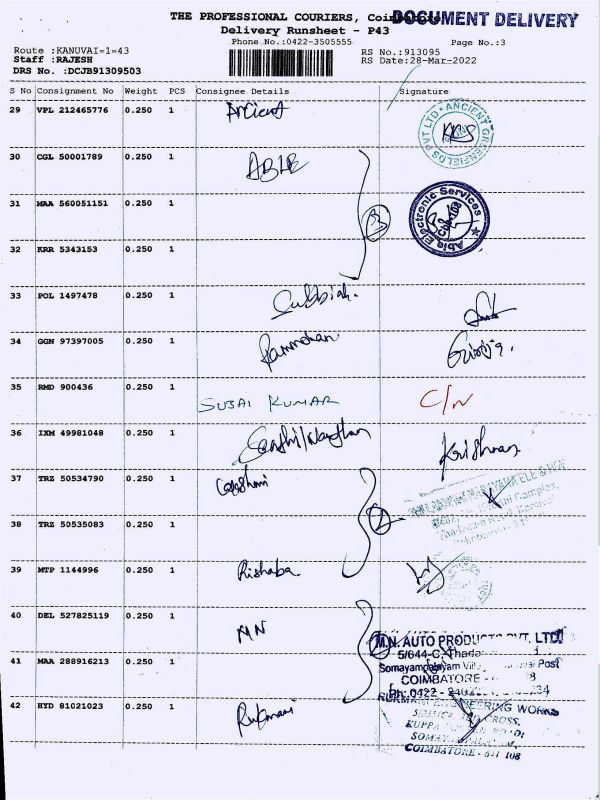 THE PROFESSIONAL COURIERS, Coimbatore
DOCUMENT DELIVERY
Delivery Runsheet - P43
Phone No.:0422-3505555
Page No.:3
Route :KANUVAI=1=43
RS No.:913095
Staff :RAJESH
RS Date:28-Mar-2022
DRS No. :DCJB91309503
S No Consignment No Weight PCS Consignee Details Signature
29 VPL 212465776 0.250 1 Ancient
ANCIENT GREENFIELDS PVT LTD
30 CGL 50001789 0.250 1 ABLE
31 MAA 560051151 0.250 1
3
Electronic Services
32 KRR 5343153 0.250 1
33 POL 1497478 0.250 1 Subbiah.
34 GGN 97397005 0.250 1 Rammohan Girija.
35 RMD 900436 0.250 1 SUJAI KUMAR C/N
36 IXM 49981048 0.250 1 Krishnan
37 TRZ 50534790 0.250 1 Lakshmi
38 TRZ 50535083 0.250 1
2
39 MTP 1144996 0.250 1 Rishaba
40 DEL 527825119 0.250 1 MN
M.N. AUTO PRODUCTS PVT. LTD.
5/644-C, Thada
41 MAA 288916213 0.250 1
Somayampalayam Post
COIMBATORE
Ph: 0422
42 HYD 81021023 0.250 1 Rukmani
RUKMANI ENGINEERING WORKS
CROSS,
KUPPA
SOMA
COIMBATORE - 641 108